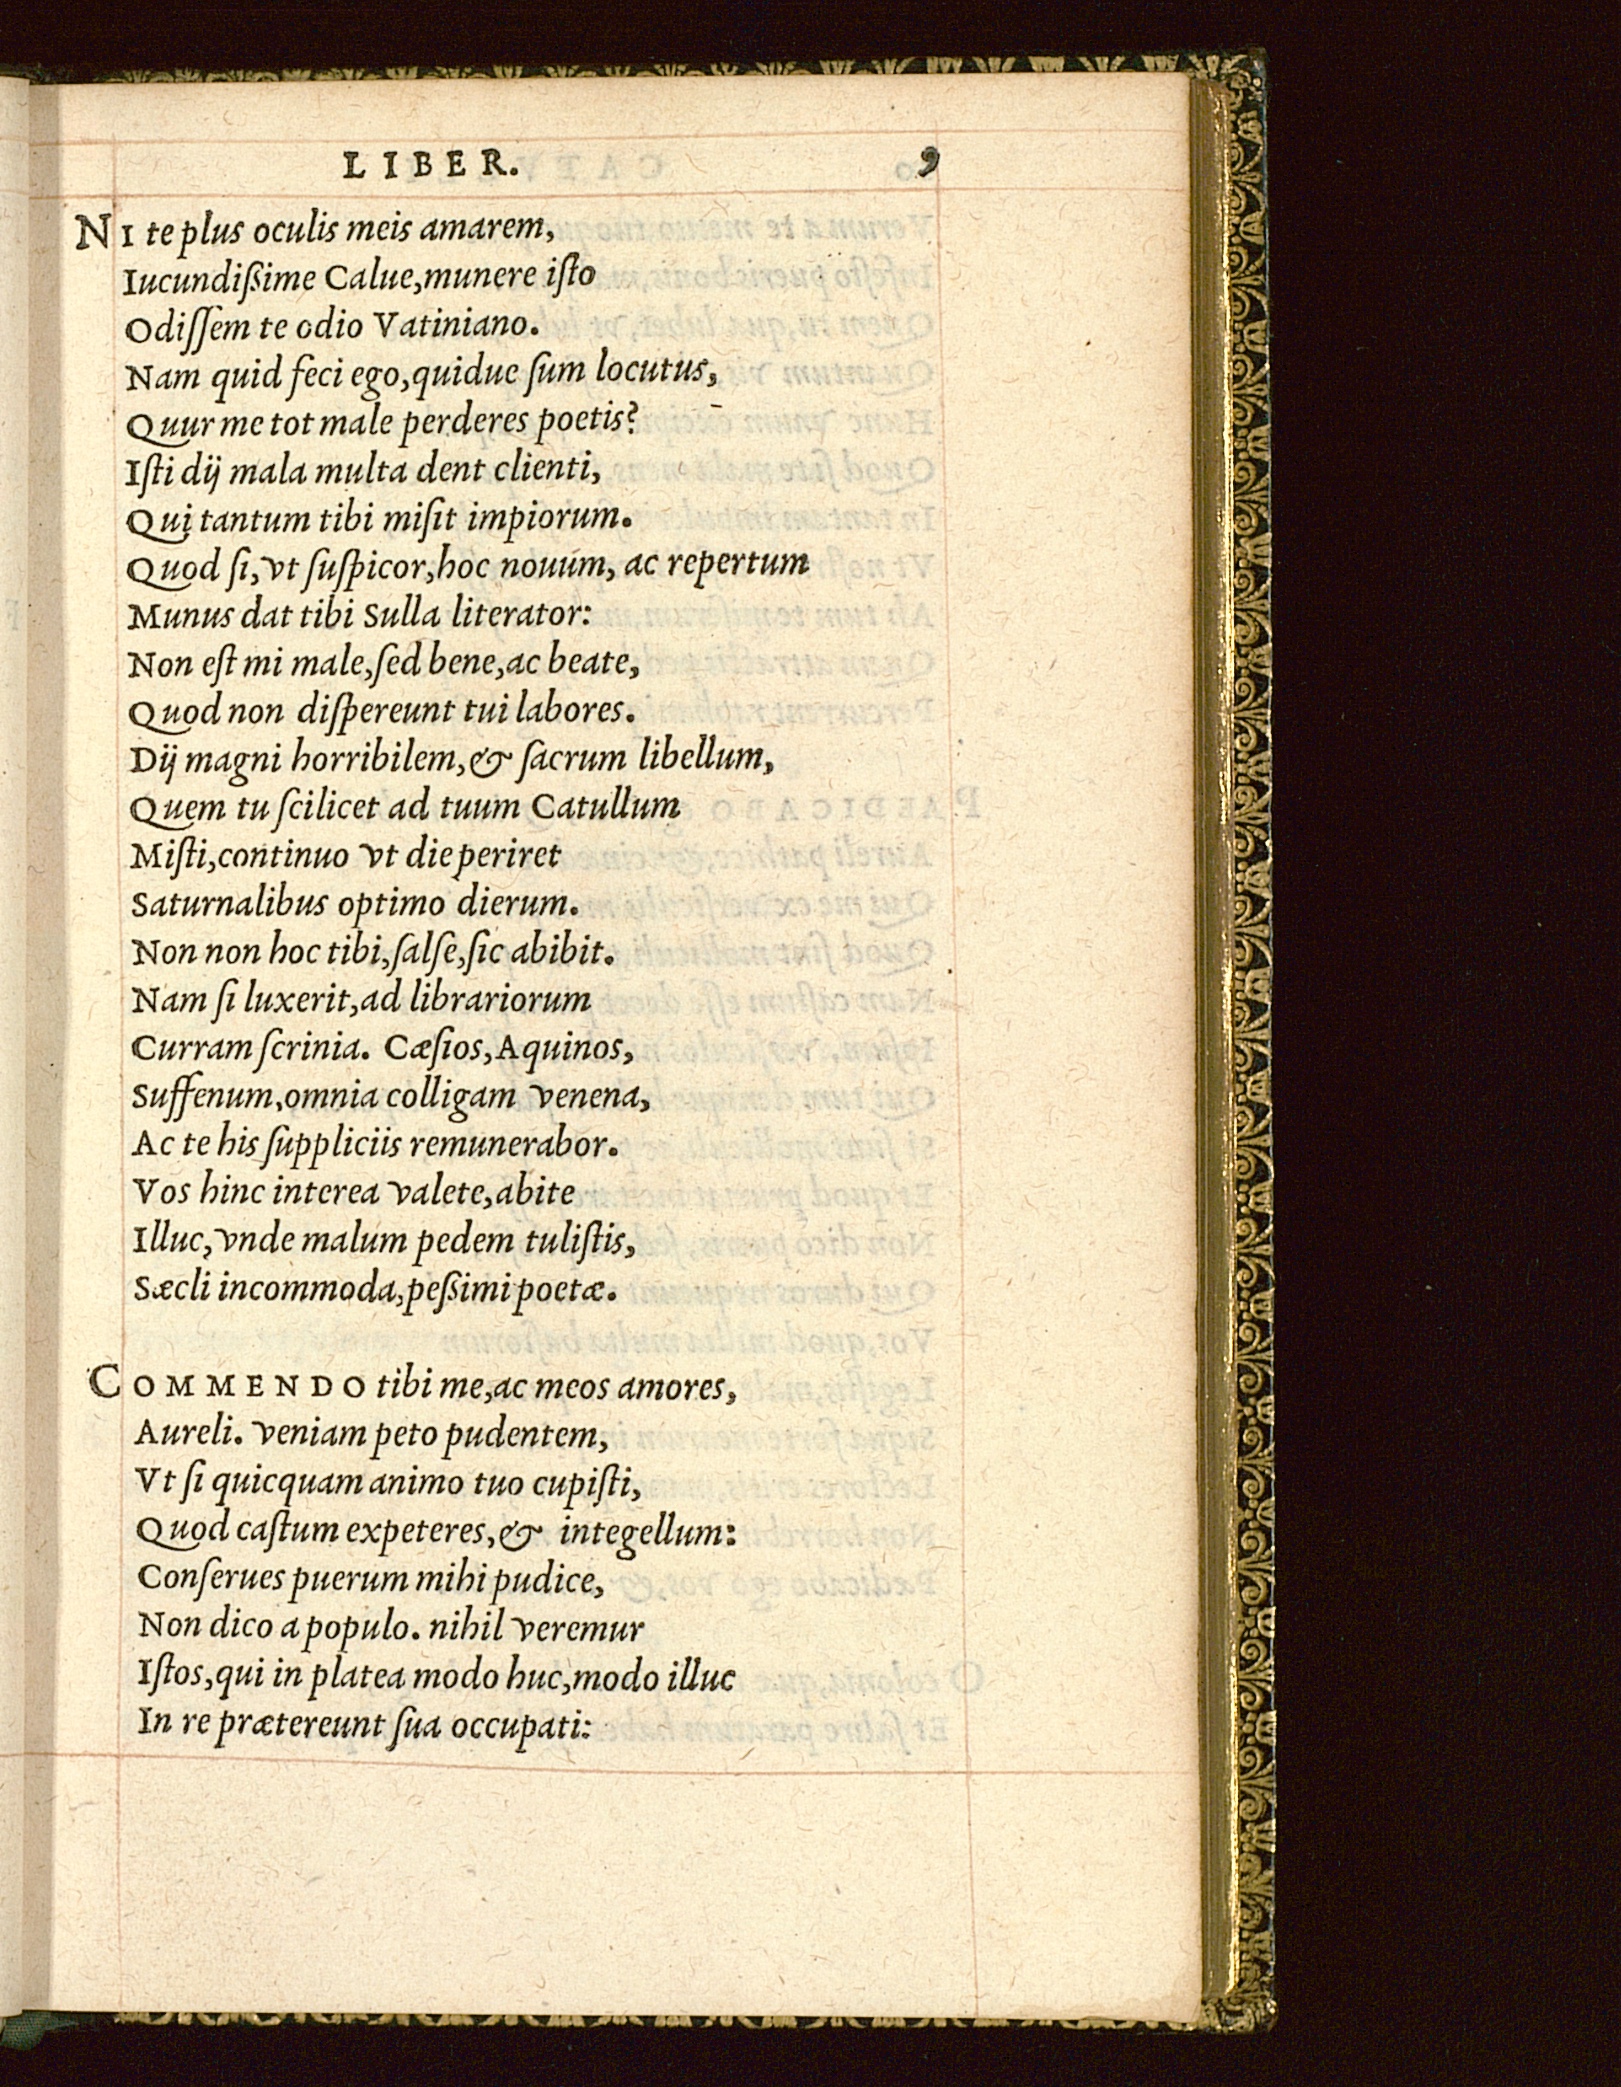 LIBER. 9
NI te plus oculis meis amarem,
Iucundißime Calue, munere iſto
Odiſſem te odio Vatiniano.
Nam quid feci ego, quidue ſum locutus,
Quur me tot male perderes poetis?
Iſti dij mala multa dent clienti,
Qui tantum tibi miſit impiorum.
Quod ſi, vt ſuſpicor, hoc nouum, ac repertum
Munus dat tibi Sulla literator:
Non eſt mi male, ſed bene, ac beate,
Quod non diſpereunt tui labores.
Dij magni horribilem, & ſacrum libellum,
Quem tu ſcilicet ad tuum Catullum
Miſti, continuo vt die periret
Saturnalibus optimo dierum.
Non non hoc tibi, ſalſe, ſic abibit.
Nam ſi luxerit, ad librariorum
Curram ſcrinia. Cæſios, Aquinos,
Suffenum, omnia colligam venena,
Ac te his ſuppliciis remunerabor.
Vos hinc interea valete, abite
Illuc, vnde malum pedem tuliſtis,
Sæcli incommoda, peßimi poetæ.
COMMENDO tibi me, ac meos amores,
Aureli. veniam peto pudentem,
Vt ſi quicquam animo tuo cupiſti,
Quod caſtum expeteres, & integellum:
Conſerues puerum mihi pudice,
Non dico a populo. nihil veremur
Iſtos, qui in platea modo huc, modo illuc
In re prætereunt ſua occupati: